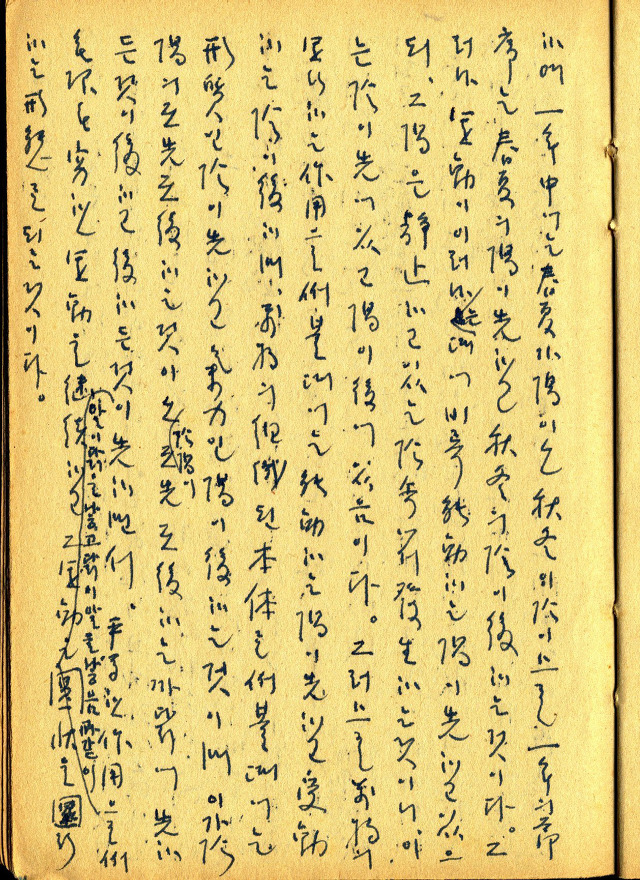 하며 一年中에는 春夏가 陽이요 秋冬이 陰이므로 一年의
序는 春夏의 陽이 先하고 秋冬의 陰이 後하는 것이다。그
러나 運動이 이러나는 때에 비록 能動하는 陽이 先하고 있으
되、그 陽은 靜止하고 있는 陰에서 發生하는 것이니 이
는 陰이 先에 있고 陽이 後에 있음이다。그러므로 萬物의
하는 作用으로써 볼 때에는 能動하는 陽이 先하고 受動
하는 陰이 後하며、萬物의 組織된 本体로써 볼 때에는
形質인 陰이 先하고 氣力인 陽이 後하는 것이며 이가치 陰
陽의 互先互後하는 것이 陰陽이 互先互後하는 까닭에 先하
든 것이 後하고 後하든 것이 先하면서、作用으로써
運動을 継続하고 알이 닭을 낳고 닭이 알을 낳음과 같이 그 運動은
하는 形態로 되는 것이다。